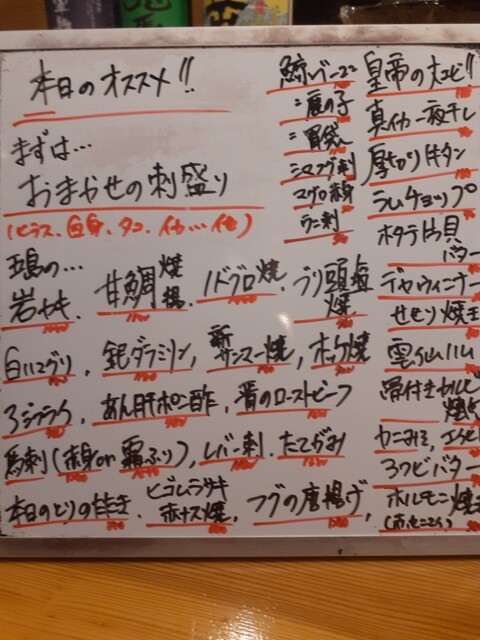 本日のオススメ!!
まずは…
おまかせの刺盛り
(ヒラス、白身、タコ、イカ…他)
五島の…
岩ガキ、甘鯛 焼 揚、ノドグロ焼、ブリ頭塩焼
白ハマグリ、銀ダラミリン、新サンマ一焼、ホッケ焼
あん肝ポン酢、晋のローストビーフ
馬刺(赤身or霜ふり)、レバー刺、たてがみ
本日のとりの
ホナス焼、フグの唐揚げ
鯨ベーコン
〃鹿の子
〃胃袋
シマフグ刺
マグロ赤身
ウニ刺
皇帝の大エビ!!
真イカ一夜干し
厚切り牛タン
ラムチョップ
ホタテ片貝
バター
チャウィンナー
せせり焼
雲仙ハム
骨付きカルビ
カニみそ、エイヒレ
アワビバター
ホルモン焼